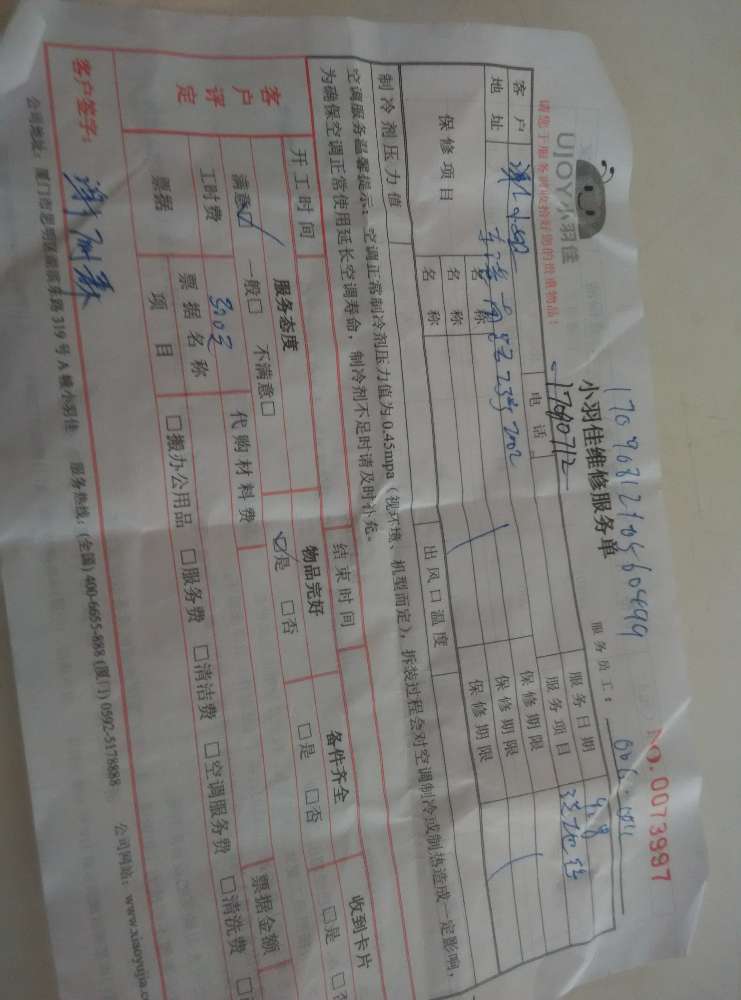 UJOY小羽佳
请您于服务前收拾好您的贵重物品！
小羽佳维修服务单
NO.0073997
服务员工：
客户
电话
17090712
服务日期
地址
服务项目
保修项目
名称
保修期限
名称
保修期限
名称
保修期限
制冷剂压力值
出风口温度
空调服务温馨提示：空调正常制冷剂压力值为0.45mpa（视环境、机型而定），拆装过程会对空调制冷或制热造成一定影响，
为确保空调正常使用延长空调寿命，制冷剂不足时请及时补充。
开工时间
结束时间
客户评定
服务态度
物品完好
备件齐全
收到卡片
满意☑ 一般□ 不满意□
☑是 □否
□是 □否
□是 □否
工时费
代购材料费
票据
票据名称
票据金额
项目
□搬办公用品 □服务费 □清洁费 □空调服务费 □清洗费
客户签字：
公司地址：厦门市思明区 319号A幢小羽佳 服务热线：(全国) 400-6655-888 (厦门) 0592-5178888 公司网站：www.xiaoyujia.c